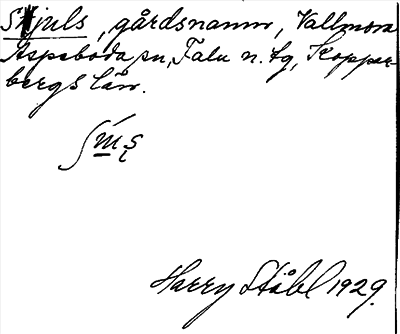 Skjuls, gårdsnamn, Vallmora
Aspeboda sn, Falu n. tg, Koppar-
bergs län.
Harry Ståhl 1929.